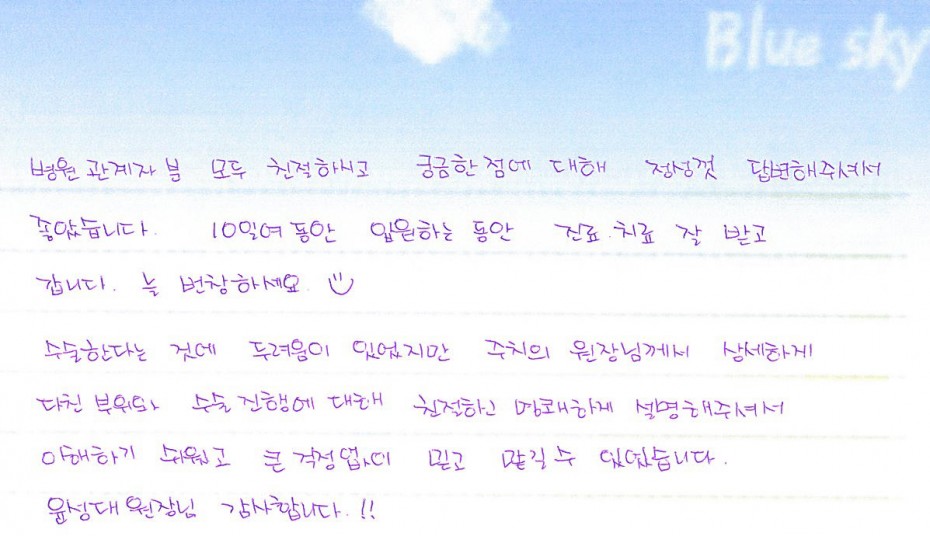 Blue sky
병원 관계자 분 모두 친절하시고 궁금한 점에 대해 정성껏 답변해주셔서
좋았습니다. 10일여 동안 입원하는 동안 진료.치료 잘 받고
갑니다. 늘 번창하세요.
수술한다는 것에 두려움이 있었지만 주치의 원장님께서 상세하게
다친 부위와 수술 진행에 대해 친절하고 명쾌하게 설명해주셔서
이해하기 쉬웠고 큰 걱정없이 믿고 맡길 수 있었습니다.
윤성대 원장님 감사합니다.!!